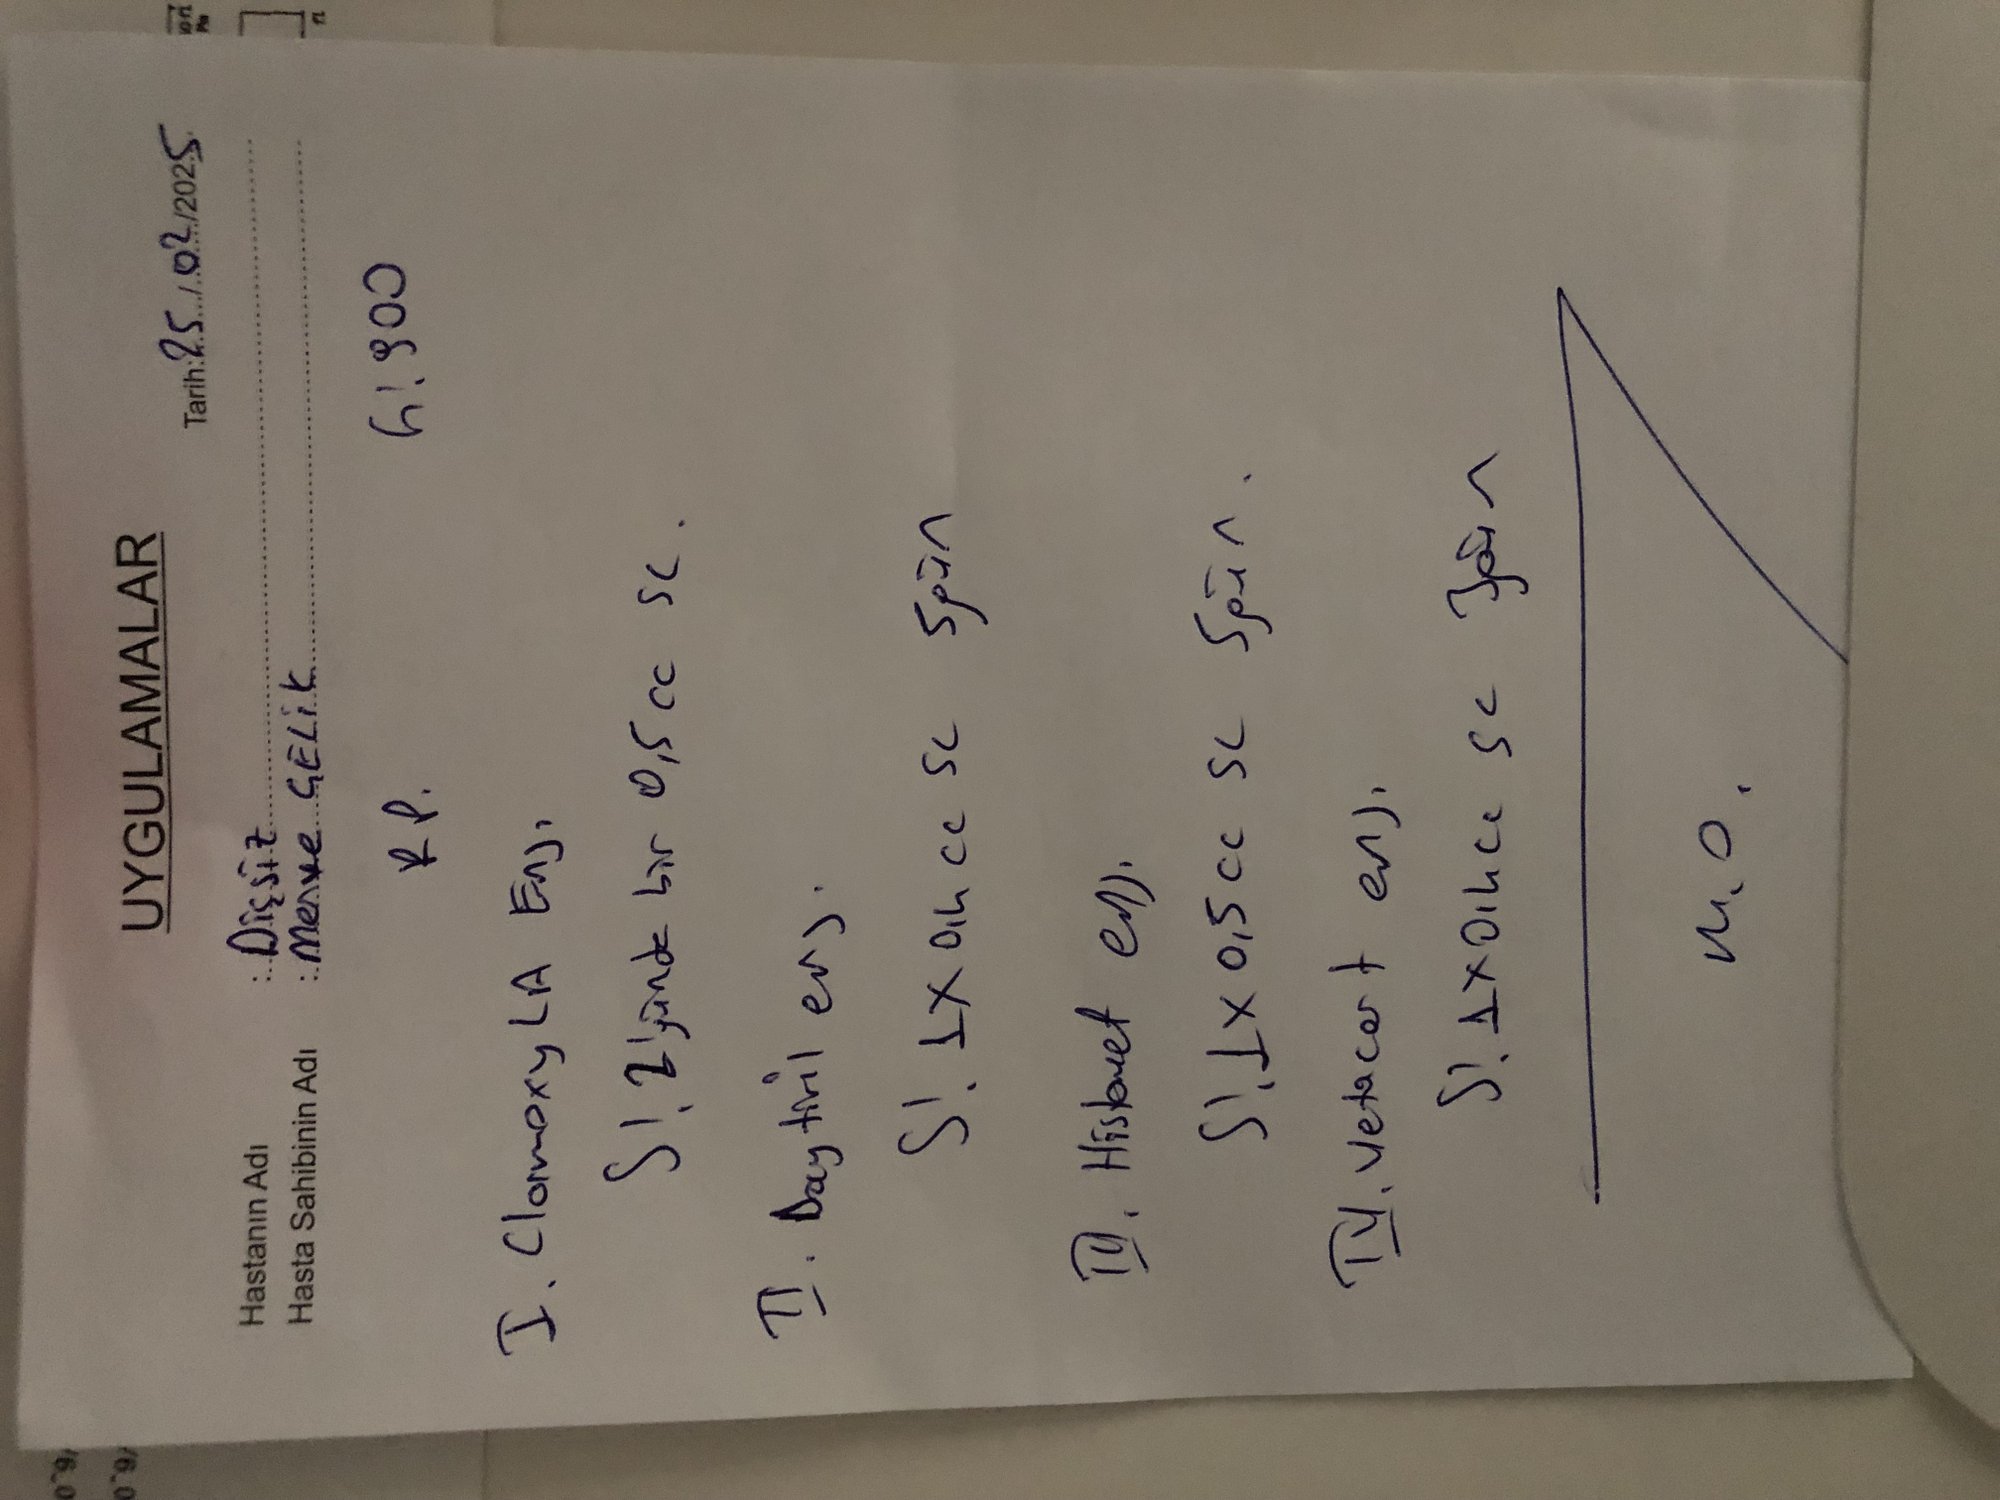 UYGULAMALAR
Tarih: 25./.02./2025
Hastanın Adı : Dişsiz
Hasta Sahibinin Adı : Merve ÇELİK
R.P. 4!.900
I. Clamoxyl LA Enj.
S!. 2 günde bir 0,5 cc sc.
II. Baytril enj.
S!. 1x0,4 cc sc 5gün
III. Histavet enj.
S!. 1x0,5 cc sc 5gün.
IV. Vetacort enj.
S!. 1x0,4 cc sc 3gün
M.O.